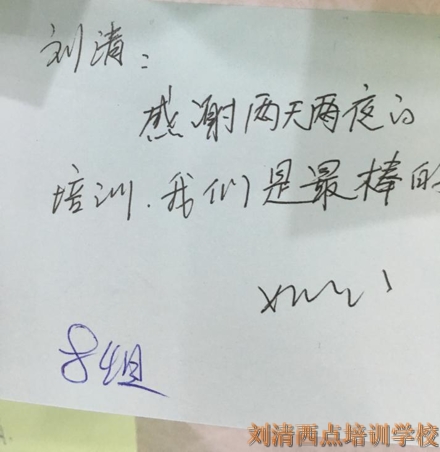 刘清：
感谢两天两夜的
培训.我们是最棒的
8组
刘清西点培训学校